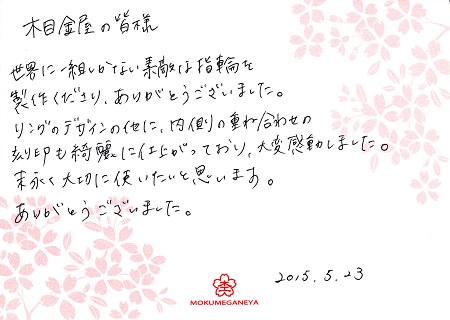 木目金屋の皆様
世界に一組しかない素敵な指輪を
製作くださり、ありがとうございました。
リングのデザインの他に、内側の重ね合わせの
刻印も綺麗に仕上がっており、大変感動しました。
末永く大切に使いたいと思います。
ありがとうございました。
2015.5.23
MOKUMEGANEYA